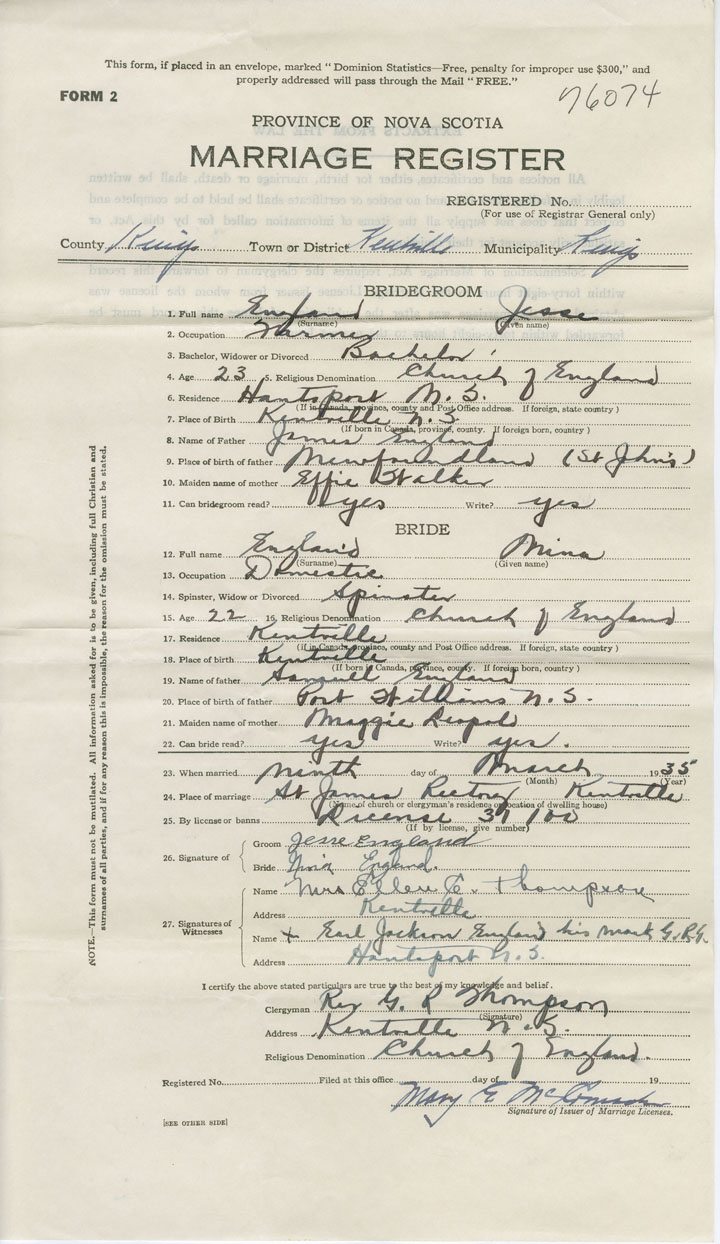 This form, if placed in an envelope, marked "Dominion Statistics—Free, penalty for improper use $300," and
properly addressed will pass through the Mail "FREE."
FORM 2
76074
PROVINCE OF NOVA SCOTIA
MARRIAGE REGISTER
REGISTERED No.
(For use of Registrar General only)
County Kings Town or District Kentville Municipality Kings
BRIDEGROOM
1. Full name England Jesse
(Surname) (Given name)
2. Occupation Farmer
3. Bachelor, Widower or Divorced Bachelor
4. Age 23 5. Religious Denomination Church of England
6. Residence Hantsport N.S.
(If in Canada, province, county and Post Office address. If foreign, state country)
7. Place of Birth Kentville N.S.
(If born in Canada, province, county. If foreign born, country)
8. Name of Father James England
9. Place of birth of father Newfoundland (St Johns)
10. Maiden name of mother Effie Stalker
11. Can bridegroom read? yes Write? yes
BRIDE
12. Full name England Mina
(Surname) (Given name)
13. Occupation Domestic
14. Spinster, Widow or Divorced Spinster
15. Age 22 16. Religious Denomination Church of England
17. Residence Kentville
(If in Canada, province, county and Post Office address. If foreign, state country)
18. Place of birth Kentville
(If born in Canada, province, county. If foreign born, country)
19. Name of father Samuell England
20. Place of birth of father Port Williams N.S.
21. Maiden name of mother Maggie
22. Can bride read? yes Write? yes.
23. When married ninth day of March 1935
(Month) (Year)
24. Place of marriage St James Rectory Kentville
(Name of church or clergyman's residence or location of dwelling house)
25. By license or banns License
(If by license, give number)
26. Signature of
Groom Jesse England
Bride England.
27. Signatures of Witnesses
Name Mrs Ellen E. Thompson
Address Kentville
Name + Earl Jackson England his mark G.R.T.
Address Hantsport N.S.
I certify the above stated particulars are true to the best of my knowledge and belief.
Clergyman Rev G. R Thompson
(Signature)
Address Kentville N.S.
Religious Denomination Church of England.
Registered No. Filed at this office day of 19
Mary E
Signature of Issuer of Marriage Licenses.
[SEE OTHER SIDE]
NOTE.—This form must not be mutilated. All information asked for is to be given, including full Christian and
surnames of all parties, and if for any reason this is impossible, the reason for the omission must be stated.